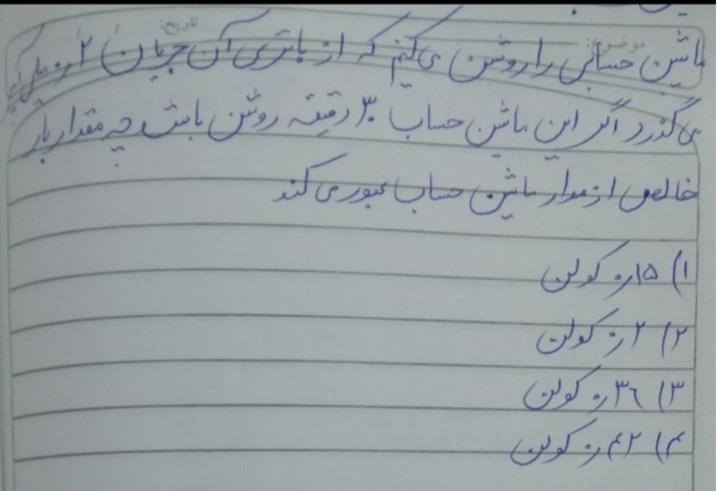 موضوع: تاریخ:
ماشین حسابی را روشن می کنیم که از باتری آن جریان ۰٫۲ میلی آمپر
می گذرد اگر این ماشین حساب ۳۰ دقیقه روشن باشد چه مقدار بار
خالص از مدار ماشین حساب عبور می کند
۱) ۰٫۱۵ کولن
۲) ۰٫۲ کولن
۳) ۰٫۳۶ کولن
۴) ۰٫۴۲ کولن